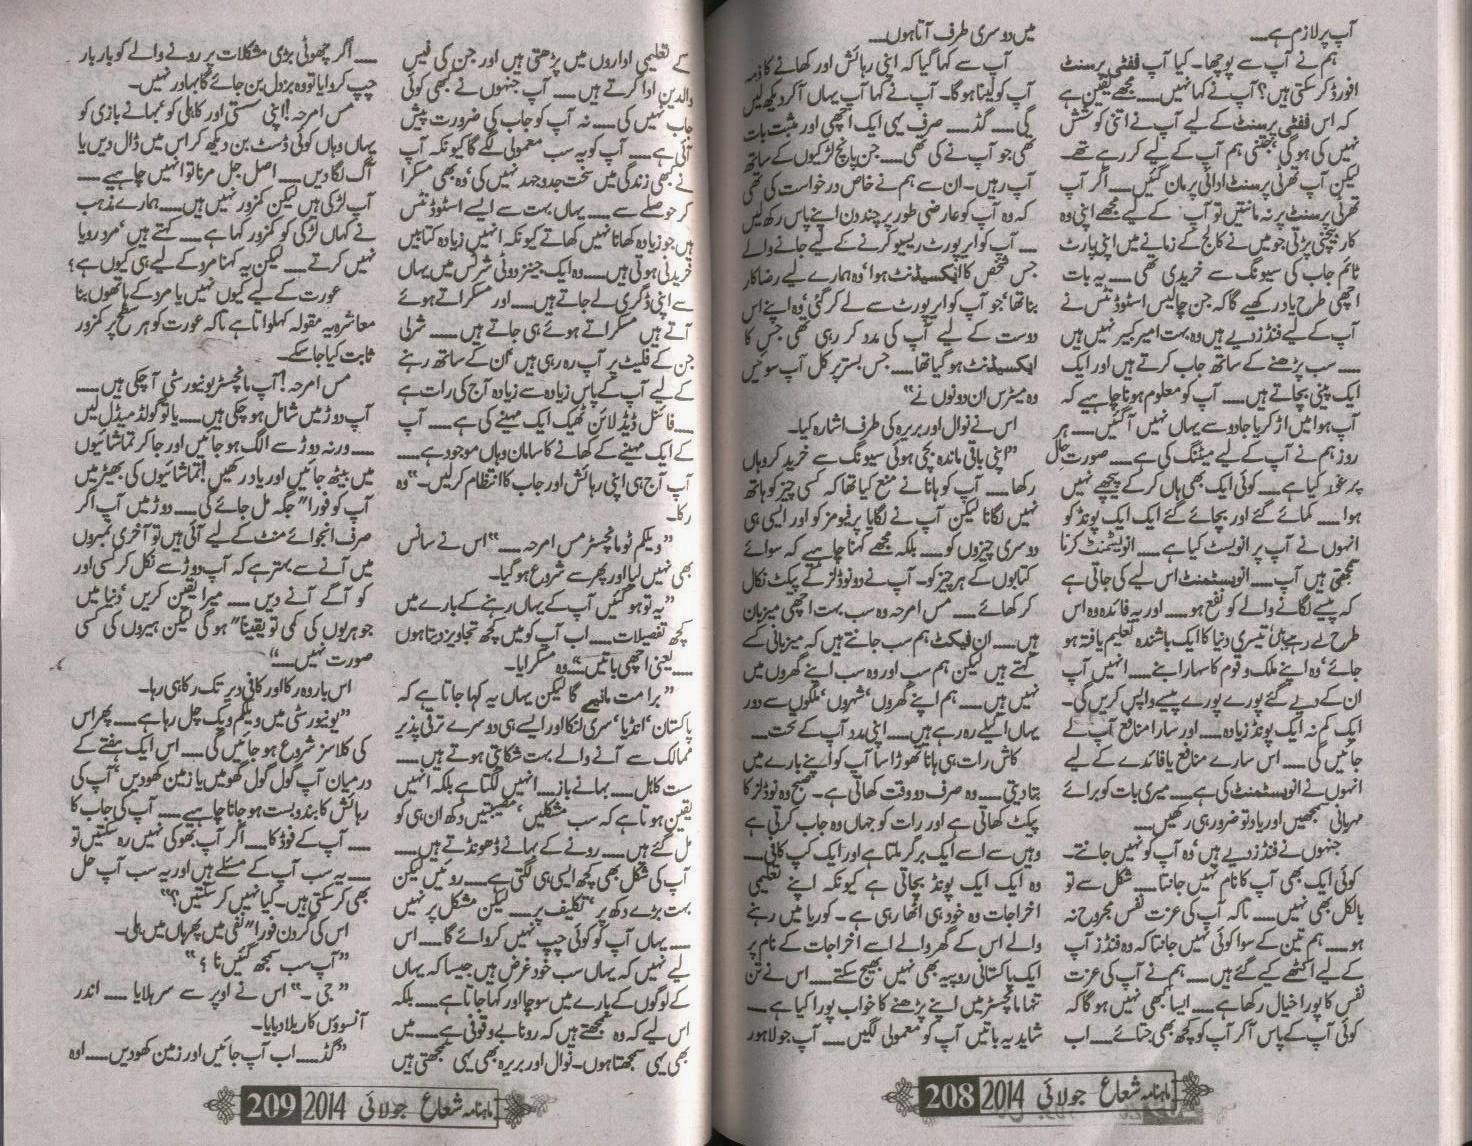 آپ پر لازم ہے.....
ہم نے آپ سے پوچھا۔ کیا آپ ففٹی پرسنٹ
افورڈ کر سکتی ہیں؟ آپ نے کہا نہیں..... مجھے یقین ہے
کہ اس ففٹی پرسنٹ کے لیے آپ نے اتنی کوشش
نہیں کی ہو گی، جتنی ہم آپ کے لیے کر رہے تھے۔
لیکن آپ تھرٹی پرسنٹ ادائی پر مان گئیں..... اگر آپ
تھرٹی پرسنٹ پر نہ مانتیں تو آپ کے لیے مجھے اپنی وہ
کار بیچنی پڑتی جو میں نے کالج کے زمانے میں اپنی پارٹ
ٹائم جاب کی سیونگ سے خریدی تھی..... یہ بات
اچھی طرح یاد رکھیے گا کہ جن چالیس اسٹوڈنٹس نے
آپ کے لیے فنڈز دیے ہیں وہ بہت امیر کبیر نہیں ہیں
..... سب پڑھنے کے ساتھ جاب کرتے ہیں اور ایک
ایک پینی بچاتے ہیں..... آپ کو معلوم ہونا چاہیے کہ
آپ ہوا میں اڑ کر یا جادو سے یہاں نہیں آ گئیں..... ہر
روز ہم نے آپ کے لیے میٹنگ کی ہے..... صورت حال
پر غور کیا ہے..... کوئی ایک بھی ہاں کر کے پیچھے نہیں
ہوا..... کمائے گئے اور بچائے گئے ایک ایک پونڈ کو
انہوں نے آپ پر انویسٹ کیا ہے..... انویسٹمنٹ کرنا
سمجھتی ہیں آپ..... انویسٹمنٹ اس لیے کی جاتی ہے
کہ پیسے لگانے والے کو نفع ہو..... اور یہ فائدہ وہ اس
طرح لے رہے ہیں، تیسری دنیا کا ایک باشندہ تعلیم یافتہ ہو
جائے، وہ اپنے ملک و قوم کا سہارا بنے..... انہیں آپ
ان کے دیے گئے پورے پورے پیسے واپس کریں گی۔
ایک کم نہ ایک پونڈ زیادہ..... اور سارا منافع آپ لے
جائیں گی..... اس سارے منافع یا فائدے کے لیے
انہوں نے انویسٹمنٹ کی ہے..... میری بات کو برائے
مہربانی سمجھیں اور یاد تو ضرور ہی رکھیں.....
جنہوں نے فنڈز دیے ہیں، وہ آپ کو نہیں جانتے۔
کوئی ایک بھی آپ کا نام نہیں جانتا..... شکل سے تو
بالکل بھی نہیں..... تاکہ آپ کی عزت نفس مجروح نہ
ہو..... ہم تین کے سوا کوئی نہیں جانتا کہ وہ فنڈز آپ
کے لیے اکٹھے کیے گئے ہیں..... ہم نے آپ کی عزت
نفس کا پورا خیال رکھا ہے..... ایسا کبھی نہیں ہو گا کہ
کوئی آپ کے پاس آ کر آپ کو کچھ بھی جتائے..... اب
میں دوسری طرف آتا ہوں.....
آپ سے کہا گیا کہ اپنی رہائش اور کھانے کا ذمہ
آپ کو لینا ہو گا۔ آپ نے کہا آپ یہاں آ کر دیکھ لیں
گی..... گڈ..... صرف یہی ایک اچھی اور مثبت بات
تھی جو آپ نے کی تھی..... جن پانچ لڑکیوں کے ساتھ
آپ رہیں۔ ان سے ہم نے خاص درخواست کی تھی
کہ وہ آپ کو عارضی طور پر چند دن اپنے پاس رکھ لیں
..... آپ کو ایر پورٹ ریسیو کرنے کے لیے جانے والے
جس شخص کا ایکسیڈنٹ ہوا، وہ ہمارے لیے رضا کار
بنا تھا، جو آپ کو ایر پورٹ سے لے کر گئی، وہ اپنے اس
دوست کے لیے آپ کی مدد کر رہی تھی جس کا
ایکسیڈنٹ ہو گیا تھا..... جس بستر پر کل آپ سوئیں
وہ میٹرس ان دونوں نے"
اس نے نوال اور بریرہ کی طرف اشارہ کیا۔
"اپنی باقی ماندہ بچی ہوئی سیونگ سے خرید کر وہاں
رکھا..... آپ کو ہانا نے منع کیا تھا کہ کسی چیز کو ہاتھ
نہیں لگانا لیکن آپ نے لگایا پرفیومز کو اور ایسی ہی
دوسری چیزوں کو..... بلکہ مجھے کہنا چاہیے کہ سوائے
کتابوں کے ہر چیز کو۔ آپ نے دو نوڈلز کے پیکٹ نکال
کر کھائے..... مس امرحہ وہ سب بہت اچھی میزبان
ہیں..... ان فیکٹ ہم سب جانتے ہیں کہ میزبانی کسے
کہتے ہیں لیکن ہم سب اور وہ سب اپنے گھروں میں
نہیں ہیں..... ہم اپنے گھروں، شہروں، ملکوں سے دور
یہاں اکیلے رہ رہے ہیں..... اپنی مدد آپ کے تحت.....
کاش رات ہی ہانا تھوڑا سا آپ کو اپنے بارے میں
بتا دیتی..... وہ صرف دو وقت کھاتی ہے۔ صبح وہ نوڈلز کا
پیکٹ کھاتی ہے اور رات کو جہاں وہ جاب کرتی ہے
وہیں سے اسے ایک برگر ملتا ہے اور ایک کپ کافی.....
وہ ایک ایک پونڈ بچاتی ہے کیونکہ اپنے تعلیمی
اخراجات وہ خود ہی اٹھا رہی ہے۔ کوریا میں رہنے
والے اس کے گھر والے اسے اخراجات کے نام پر
ایک پاکستانی روپیہ بھی نہیں بھیج سکتے..... اس نے تن
تنہا مانچسٹر میں اپنے پڑھنے کا خواب پورا کیا ہے.....
شاید یہ باتیں آپ کو معمولی لگیں..... آپ جو لاہور
ماہنامہ شعاع جولائی 2014 208
کے تعلیمی اداروں میں پڑھتی ہیں اور جن کی فیس
والدین ادا کرتے ہیں..... آپ جنہوں نے کبھی کوئی
جاب نہیں کی..... نہ آپ کو جاب کی ضرورت پیش
آئی ہے..... آپ کو یہ سب معمولی لگے گا کیونکہ آپ
نے کبھی زندگی میں سخت جدوجہد نہیں کی، وہ بھی مسکرا
کر حوصلے سے..... یہاں بہت سے ایسے اسٹوڈنٹس
ہیں جو زیادہ کھانا نہیں کھاتے کیونکہ انہیں زیادہ کتابیں
خریدنی ہوتی ہیں..... وہ ایک جینز دو ٹی شرٹس میں یہاں
سے اپنی ڈگری لے جاتے ہیں..... اور مسکراتے ہوئے
آتے ہیں مسکراتے ہوئے ہی جاتے ہیں..... شرلی
جن کے فلیٹ پر آپ رہ رہی ہیں، ان کے ساتھ رہنے
کے لیے آپ کے پاس زیادہ سے زیادہ آج کی رات ہے
..... فائنل ڈیڈ لائن ٹھیک ایک مہینے کی ہے..... آپ
کے ایک مہینے کے کھانے کا سامان وہاں موجود ہے.....
آپ آج ہی اپنی رہائش اور جاب کا انتظام کر لیں۔" وہ
رکا۔
"ویلکم ٹو مانچسٹر مس امرحہ....." اس نے سانس
بھی نہیں لیا اور پھر سے شروع ہو گیا۔
"یہ تو ہو گئیں آپ کے یہاں رہنے کے بارے میں
کچھ تفصیلات..... اب آپ کو میں کچھ تجاویز دیتا ہوں
..... یعنی اچھی باتیں....." وہ مسکرایا۔
"برا مت مانیے گا لیکن یہاں یہ کہا جاتا ہے کہ
پاکستان، انڈیا، سری لنکا اور ایسے ہی دوسرے ترقی پذیر
ممالک سے آنے والے بہت شکایتی ہوتے ہیں.....
ست کاہل..... بہانے باز..... انہیں لگتا ہے بلکہ انہیں
یقین ہوتا ہے کہ سب مشکلیں، مصیبتیں، دکھ ان ہی کو
مل گئے ہیں..... رونے کے بہانے ڈھونڈتے ہیں.....
آپ کی شکل بھی کچھ ایسی ہی لگتی ہے..... روئیں لیکن
بہت بڑے دکھ پر، تکلیف پر..... لیکن مشکل پر نہیں
..... یہاں آپ کو کوئی چپ نہیں کروائے گا..... اس
لیے نہیں کہ یہاں سب خود غرض ہیں جیسا کہ یہاں
کے لوگوں کے بارے میں سوچا اور کہا جاتا ہے..... بلکہ
اس لیے کہ وہ سمجھتے ہیں کہ رونا بے وقوفی ہے..... میں
بھی یہی سمجھتا ہوں۔ نوال اور بریرہ بھی یہی سمجھتی ہیں
..... اگر چھوٹی بڑی مشکلات پر رونے والے کو بار بار
چپ کروایا تو وہ بزدل بن جائے گا بہادر نہیں۔
مس امرحہ! اپنی سستی اور کاہلی کو بہانے بازی کو
یہاں وہاں کوئی ڈسٹ بن دیکھ کر اس میں ڈال دیں یا
آگ لگا دیں..... اصل جل مرنا تو انہیں چاہیے.....
آپ لڑکی ہیں لیکن کمزور نہیں ہیں..... ہمارے مذہب
نے کہاں لڑکی کو کمزور کہا ہے..... کہتے ہیں، مرد رویا
نہیں کرتے..... لیکن یہ کہنا مرد کے لیے ہی کیوں ہے؟
عورت کے لیے کیوں نہیں یا مرد کے ہاتھوں بنا
معاشرہ یہ مقولہ کہلواتا ہے تاکہ عورت کو ہر سطح پر کمزور
ثابت کیا جا سکے۔
مس امرحہ! آپ مانچسٹر یونیورسٹی آ چکی ہیں.....
آپ دوڑ میں شامل ہو چکی ہیں..... یا تو گولڈ میڈل لیں
..... ورنہ دوڑ سے الگ ہو جائیں اور جا کر تماشائیوں
میں بیٹھ جائیں اور یاد رکھیں! تماشائیوں کی بھیڑ میں
آپ کو فورا" جگہ مل جائے گی..... دوڑ میں آپ اگر
صرف انجوائے منٹ کے لیے آئی ہیں تو آخری نمبروں
میں آنے سے بہتر ہے کہ آپ دوڑ سے نکل کر کسی اور
کو آگے آنے دیں..... میرا یقین کریں، دنیا میں
جوہریوں کی کمی تو یقینا" ہو گی لیکن ہیروں کی کسی
صورت نہیں....."
اس بار وہ رکا اور کافی دیر تک رکا ہی رہا۔
"یونیورسٹی میں ویلکم ویک چل رہا ہے..... پھر اس
کی کلاسز شروع ہو جائیں گی..... اس ایک ہفتے کے
درمیان آپ گول گول گھومیں یا زمین کھودیں، آپ کی
رہائش کا بندوبست ہو جانا چاہیے..... آپ کی جاب کا
..... آپ کے فوڈ کا..... اگر آپ بھوکی نہیں رہ سکتیں تو
..... یہ سب آپ کے مسئلے ہیں اور یہ سب آپ حل
بھی کر سکتی ہیں۔ کیا نہیں کر سکتیں؟"
اس کی گردن فورا" نفی میں پھر ہاں میں ہلی۔
"آپ سب سمجھ گئیں نا؟"
"جی۔" اس نے اوپر سے سر ہلایا..... اندر
آنسوؤں کا ریلا دبایا۔
"گڈ..... اب آپ جائیں اور زمین کھودیں..... اوہ
ماہنامہ شعاع جولائی 2014 209